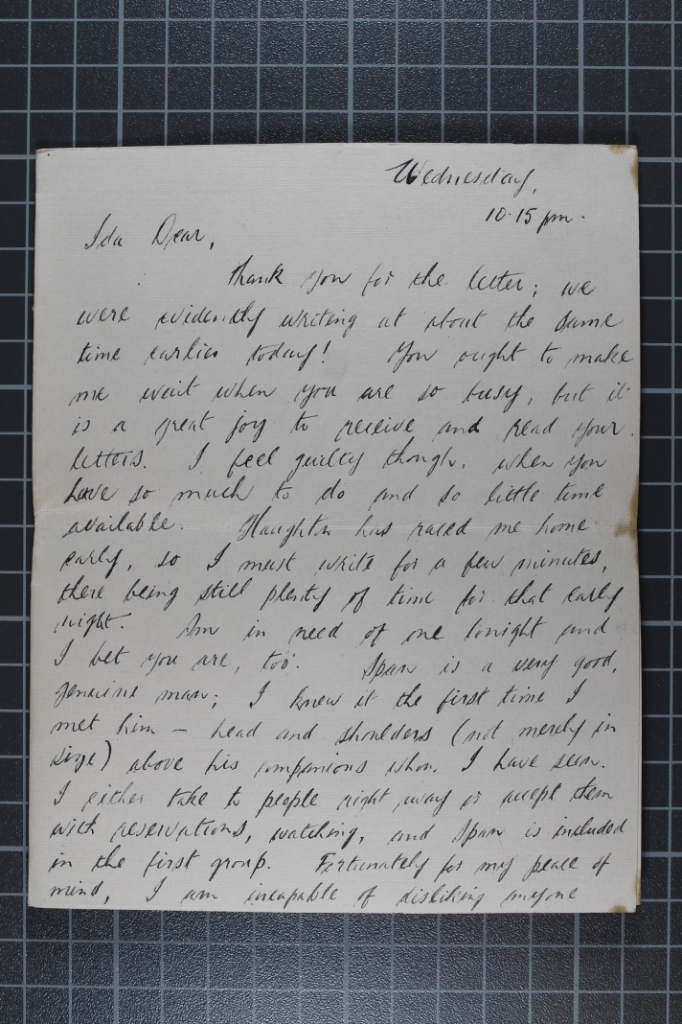 Wednesday,
10.15 pm.
Ida Dear,
Thank you for the letter; we
were evidently writing at about the same
time earlier today! You ought to make
me wait when you are so busy, but it
is a great joy to receive and read your
letters. I feel guilty though, when you
have so much to do and so little time
available. Haughton has raced me home
early, so I must write for a few minutes,
there being still plenty of time for that early
night. Am in need of one tonight and
I bet you are, too. Span is a very good,
genuine man; I knew it the first time I
met him – head and shoulders (not merely in
size) above his companions whom I have seen.
I either take to people right away or accept them
with reservations, watching, and Span is included
in the first group. Fortunately for my peace of
mind, I am incapable of disliking anyone